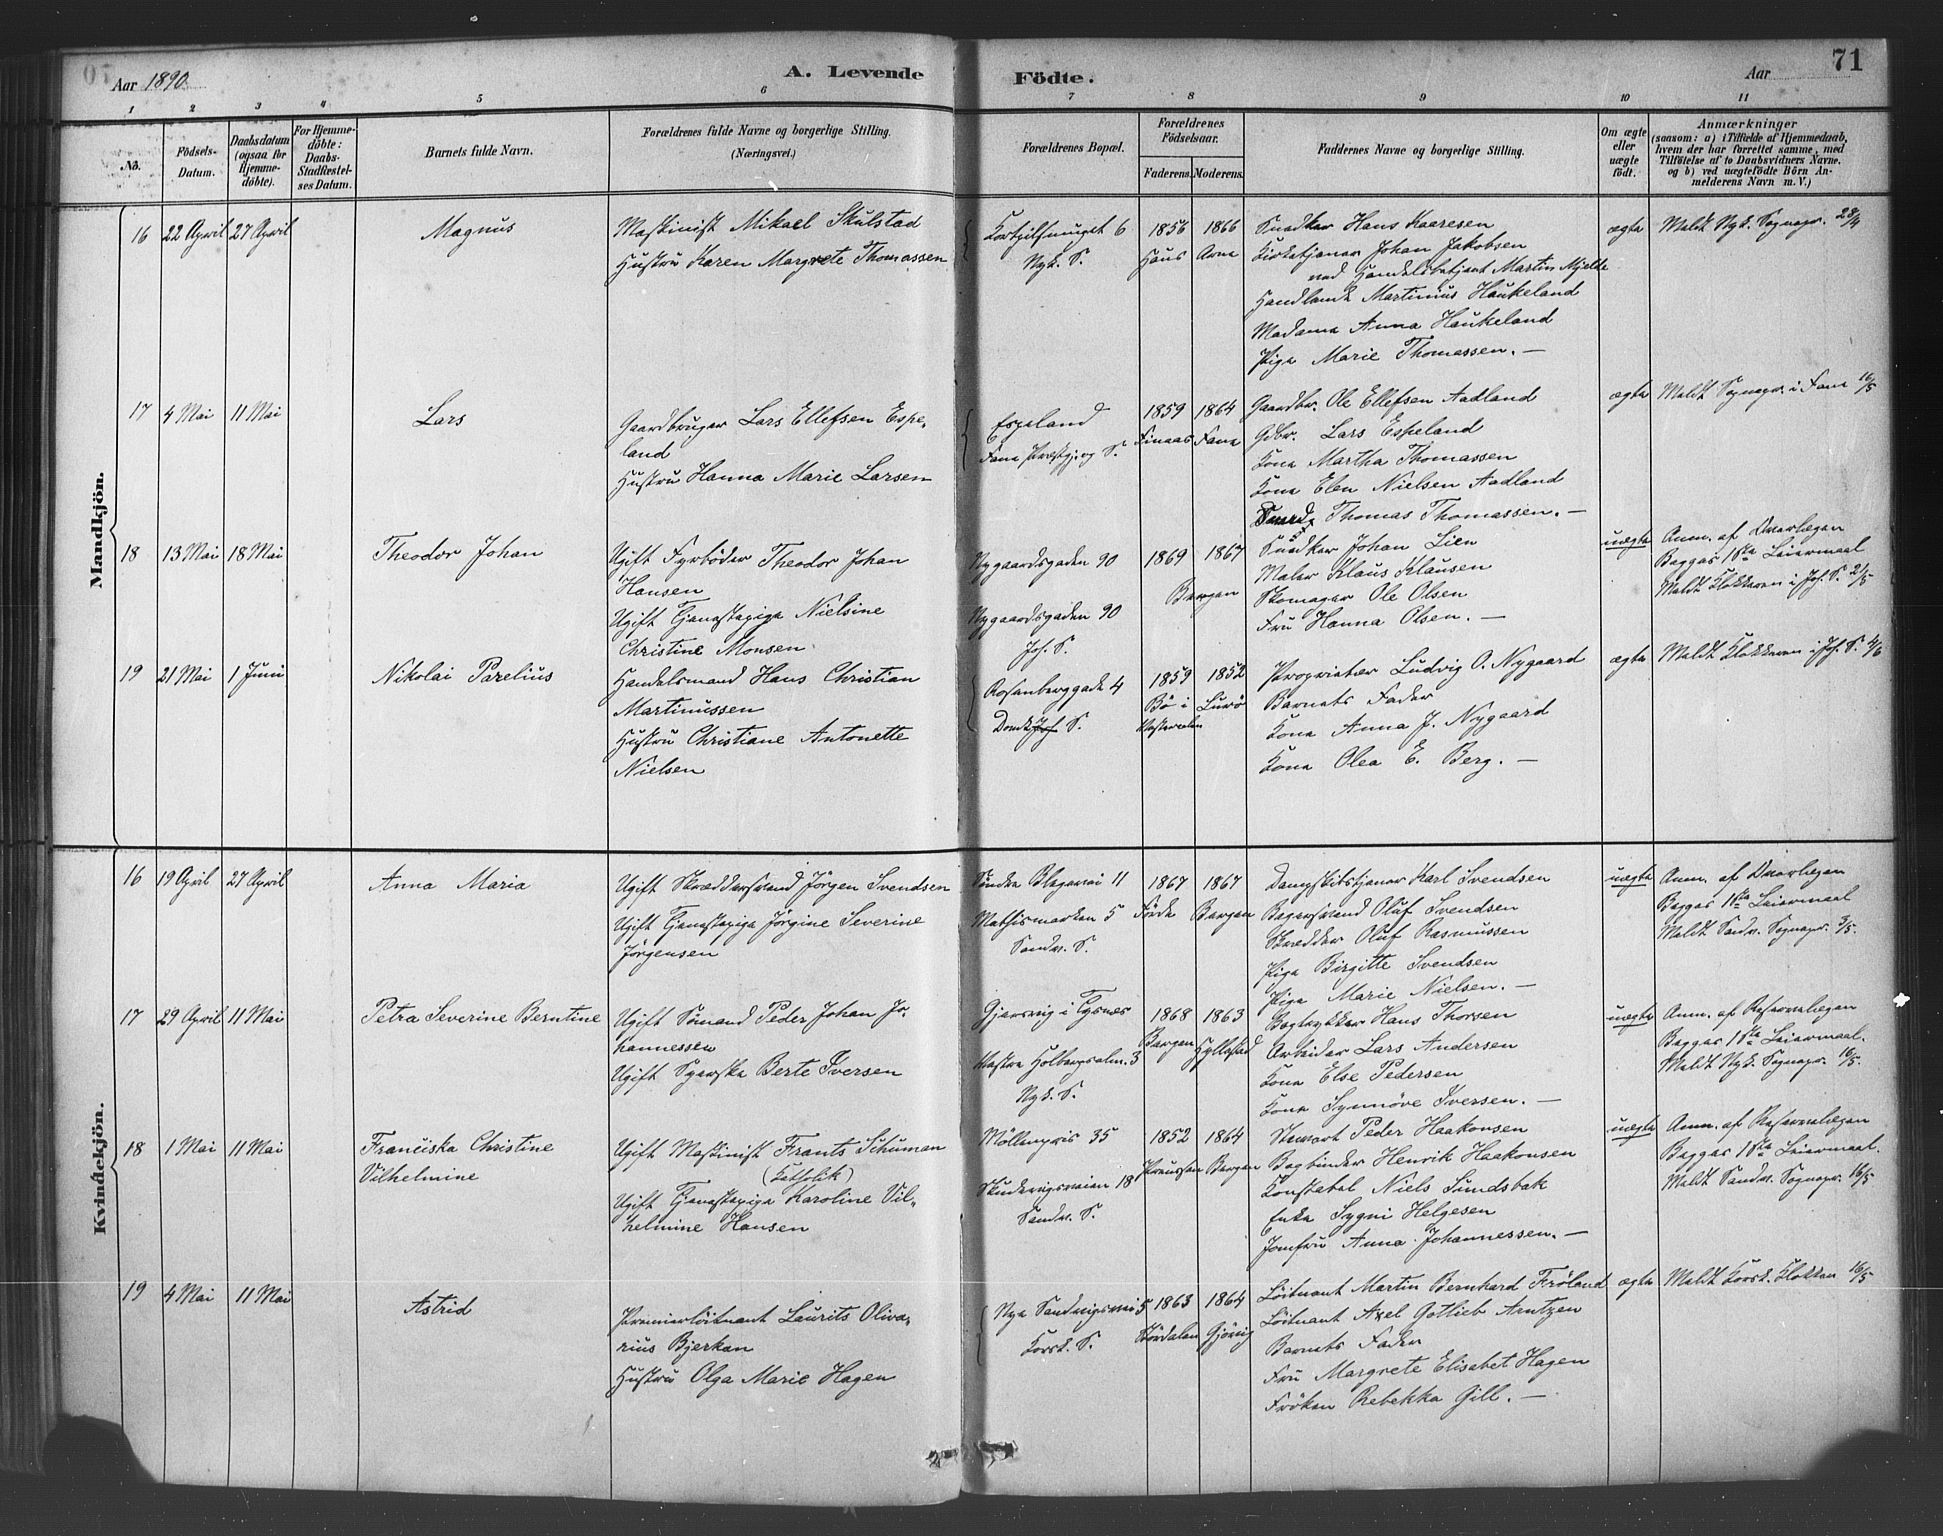 Aar 1890.
A. Levende
Födte.
Aar
71
1 2 3 4 5 6 7 8 9 10 11
No.
Födsels-
Datum.
Daabsdatum
(ogsaa for
Hjemme-
döbte).
For Hjemme-
döbte:
Daabs-
Stadfæstel-
ses Datum.
Barnets fulde Navn.
Forældrenes fulde Navne og borgerlige Stilling.
(Næringsvei.)
Forældrenes Bopæl.
Forældrenes
Födselsaar.
Faderens. Moderens.
Faddernes Navne og borgerlige Stilling.
Om ægte
eller
uægte
födt.
Anmærkninger
(saasom: a) i Tilfælde af Hjemmedaab,
hvem der har forrettet samme, med
Tilföielse af to Daabsvidners Navne,
og b) ved uægtefödte Börn An-
melderens Navn m. V.)
Mandkjön.
16 22 April 27 April
Magnus
Maskinist Mikael Skulstad
Hustru Karen Margrete Thomassen
6
Nyk. S.
1856 1866
Haus Arne
Snedker Hans Kaaresen
Kirketjener Johan Jakobsen
ved Handelsbetjent Martin Mjelde
Handlende Martinius Haukeland
Madame Anna Haukeland
Pige Marie Thomassen. —
ægte
Meldt Nyk. Sognepr. 28/4
17 4 Mai 11 Mai
Lars
Gaardbruger Lars Ellefsen Espe-
land
Hustru Hanna Marie Larsen
Espeland
Fane Præstgj. og S.
1859 1864
Finaas Fane
Gaardbr. Ole Ellefsen Aadland
Gdbr. Lars Espeland
Kone Martha Thomassen
Kone Elen Nielsen Aadland
Thomas Thomassen. —
ægte
Meldt Sognepr. i Fane 16/5
18 13 Mai 18 Mai
Theodor Johan
Ugift Fyrböder Theodor Johan
Hansen
Ugift Tjenestepige Nielsine
Christine Monsen
Nygaardsgaden 90
Nygaardsgaden 90
Joh. S.
1869 1867
Bergen
Snedker Johan Lien
Maler Klaus Klausen
Skomager Ole Olsen
Fru Hanna Olsen. —
uægte
Anm. af Overlægen
Begges 1ste Leiermaal
Meldt Klokkeren i Joh. S. 21/5
19 21 Mai 1 Juni
Nikolai Parelius
Handelsmand Hans Christian
Martinussen
Hustru Christiane Antonette
Nielsen
Rosenberggade 4
Domk. Joh S.
1859 1852
Bö i Lurö
Vesteraalen
Proprietær Ludvig O. Nygaard
Barnets Fader
Kone Anna J. Nygaard
Kone Olea E. Berg. —
ægte
Meldt Klokkeren i Joh. S. 4/6
Kvindekjön.
16 19 April 27 April
Anna Maria
Ugift Skræddersvend Jörgen Svendsen
Ugift Tjenestepige Jörgine Severine
Jörgensen
Söndre Blegevei 11
Mathismarken 5
Sandv. S.
1867 1867
Förde Bergen
Dampskibstjener Karl Svendsen
Bagersvend Oluf Svendsen
Skredder Oluf Rasmussen
Pige Birgitte Svendsen
Pige Marie Nielsen. —
uægte
Anm. af Overlægen
Begges 1ste Leiermaal
Meldt Sandv. Sognepr. 3/5.
17 29 April 11 Mai
Petra Severine Berntine
Ugift Sömand Peder Johan Jo-
hannessen
Ugift Syerske Berte Iversen
Gjersvig i Tysnes
Vestre Holbergsalm. 3
Nyk. S.
1868 1863
Bergen Hyllestad
Bogtrykker Hans Thorsen
Arbeider Lars Andersen
Kone Else Pedersen
Kone Synnöve Iversen. —
uægte
Anm. af Reservelægen
Begges 1ste Leiermaal.
Meldt Nyk. Sognepr. 16/5.
18 1 Mai 11 Mai
Franciska Christine
Vilhelmine
Ugift Maskinist Frants Schuman
(Katholik)
Ugift Tjenestepige Karoline Vil-
helmine Hansen
Möllenpris 35
Skudevigsveien 18
Sandv. S.
1852 1864
Preussen Bergen
Stuert Peder Haakonsen
Bogbinder Henrik Haakonsen
Konstabel Niels Sundsbak
Enke Sygni Helgesen
Jomfru Anna Johannessen. —
uægte
Anm. af Reservelægen
Begges 1ste Leiermaal.
Meldt Sandv. Sognepr. 16/5.
19 4 Mai 11 Mai
Astrid
Premierlöitnant Laurits Oliva-
rius Bjerkan
Hustru Olga Marie Hagen
Nye Sandvigsvei 5
Korsk. S.
1863 1864
Stördalen Gjövig
Löitnant Martin Bernhard Fröland
Löitnant Axel Gotlieb Arntzen
Barnets Fader
Fru Margrete Elisabet Hagen
Fröken Rebekka Gill. —
ægte
Meldt Korsk. Klokker 16/5